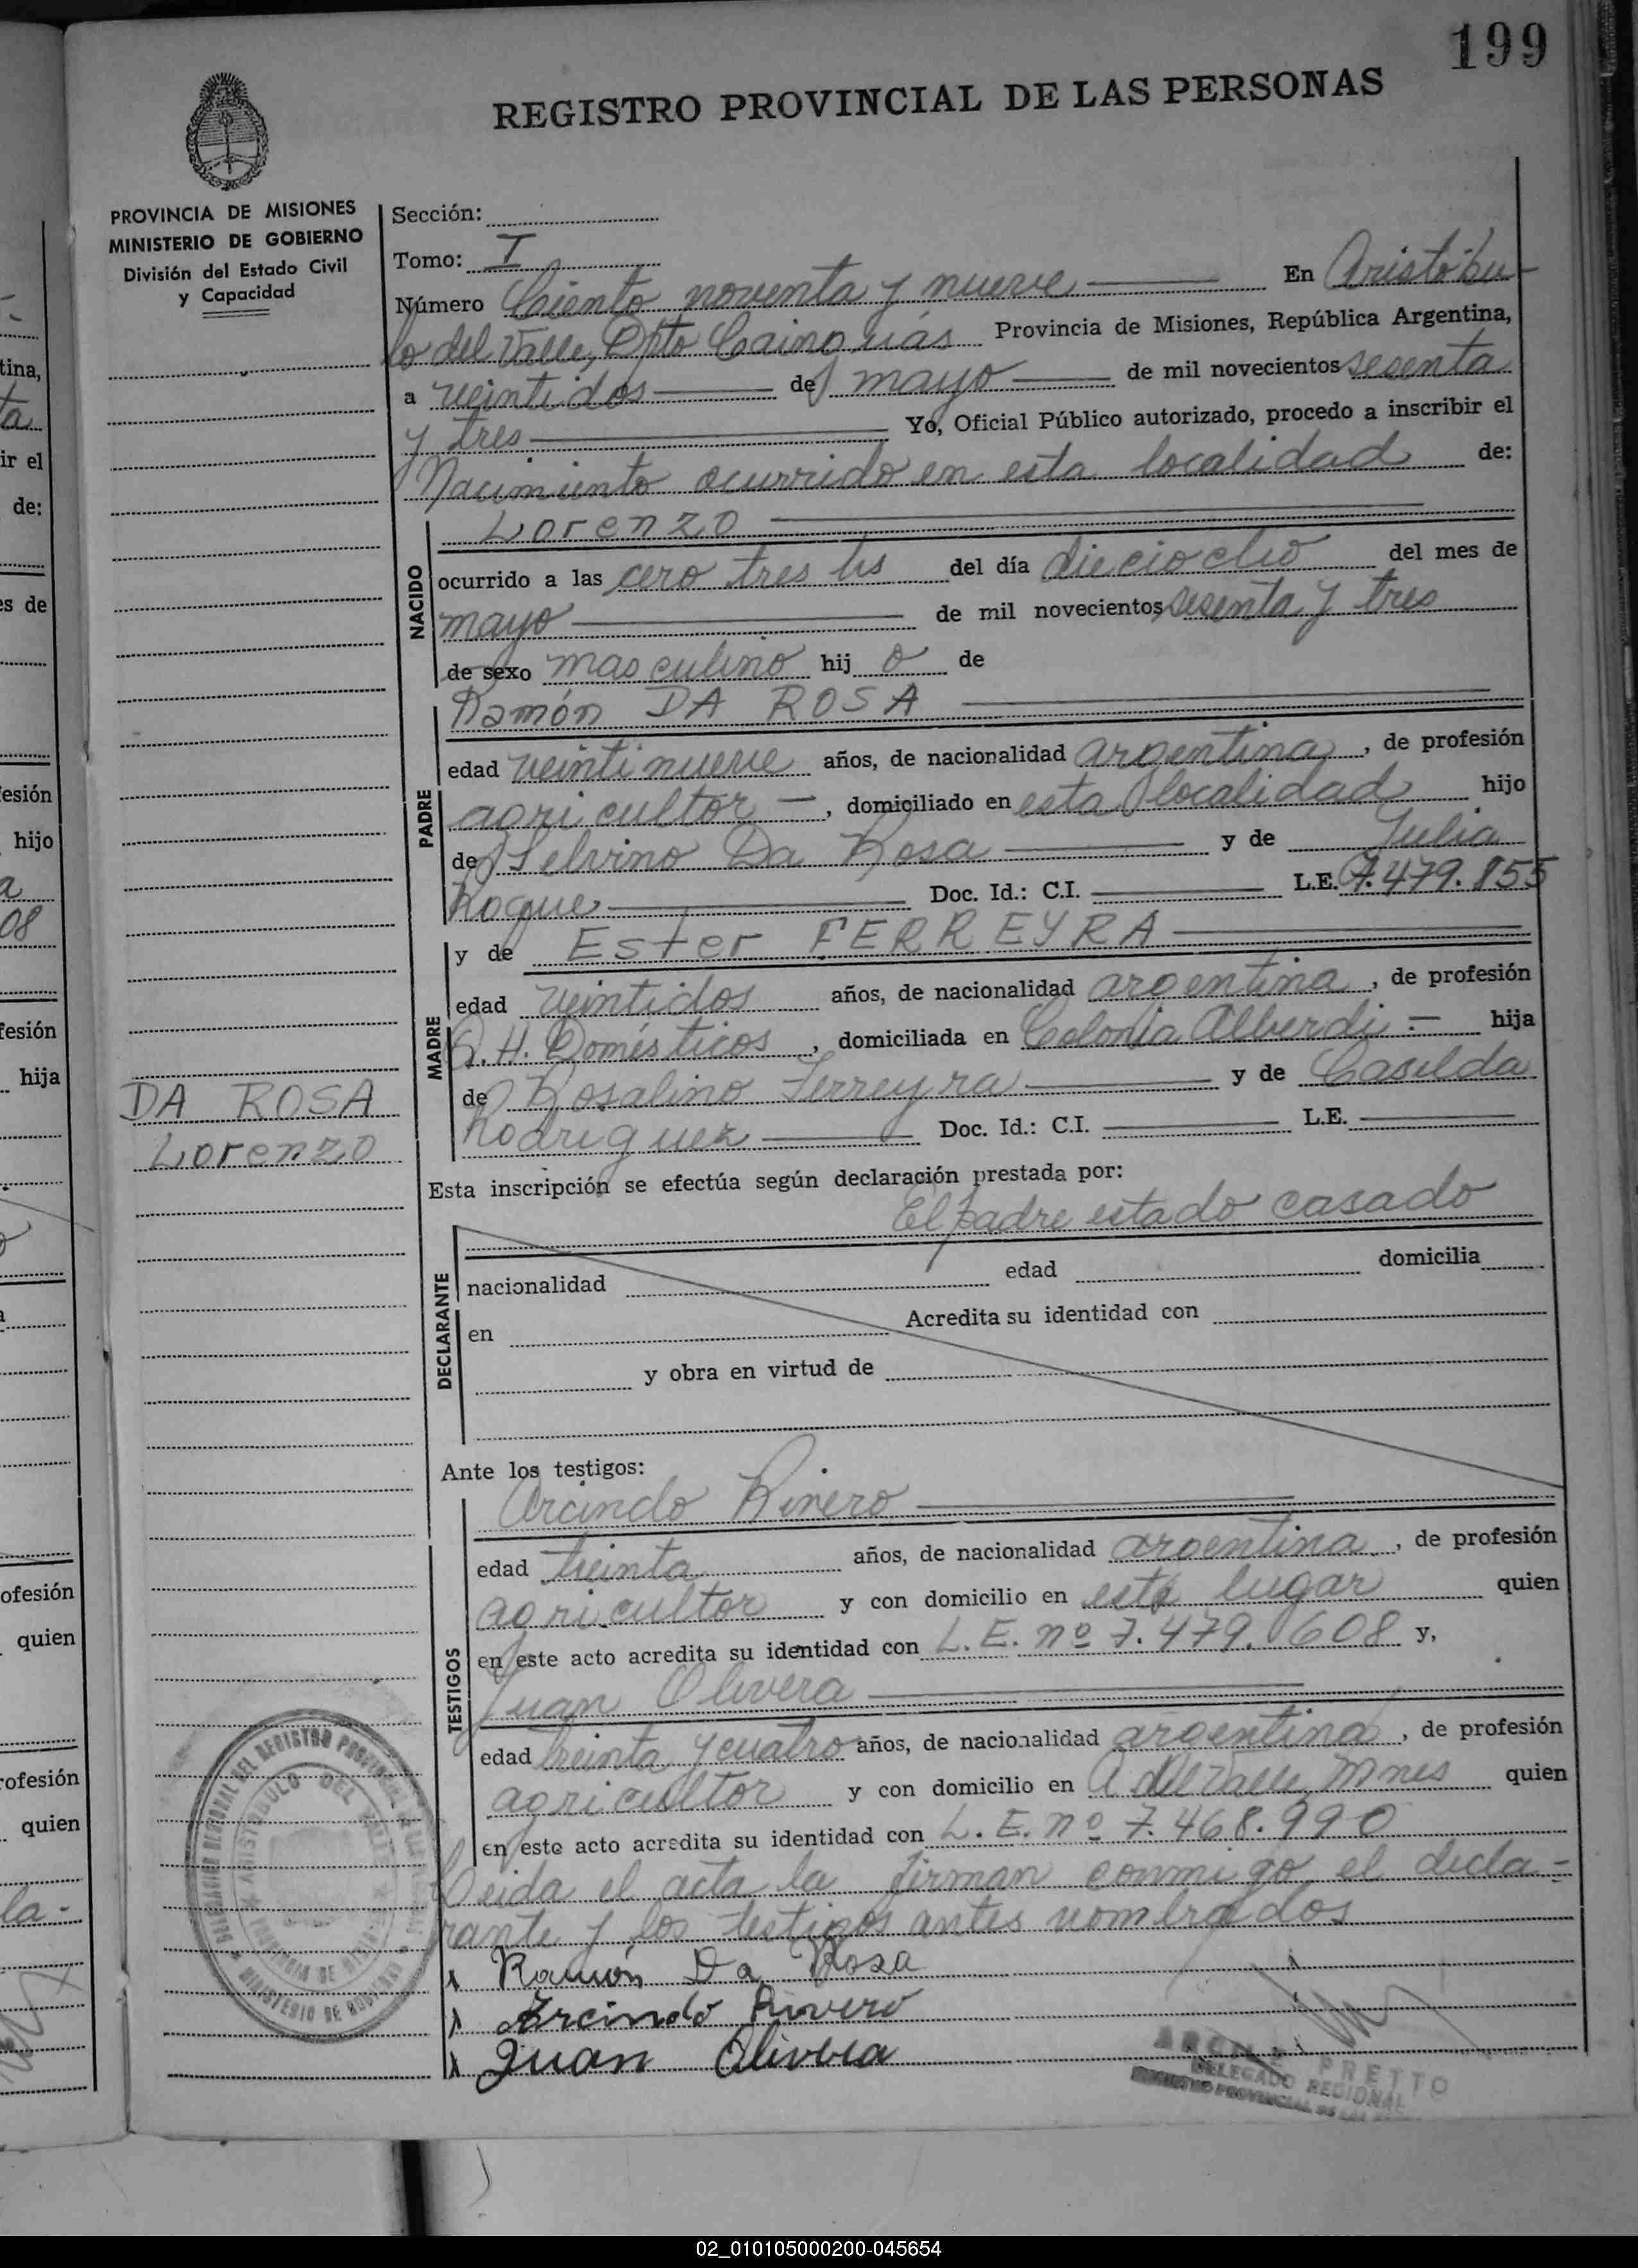 199
REGISTRO PROVINCIAL DE LAS PERSONAS
PROVINCIA DE MISIONES
MINISTERIO DE GOBIERNO
División del Estado Civil
y Capacidad
Sección:
Tomo: I
Número Ciento noventa y nueve En Aristóbu-
lo del Valle, Dpto Cainguás Provincia de Misiones, República Argentina,
a veintidos de mayo de mil novecientos sesenta
y tres Yo, Oficial Público autorizado, procedo a inscribir el
Nacimiento ocurrido en esta localidad de:
NACIDO
Lorenzo
ocurrido a las cero tres hs del día dieciocho del mes de
mayo de mil novecientos sesenta y tres
de sexo masculino hij o de
PADRE
Ramón DA ROSA
edad veintinueve años, de nacionalidad argentina, de profesión
agricultor -, domiciliado en esta localidad hijo
de Selvino Da Rosa y de Julia
Roque Doc. Id.: C.I. L.E. 7.479.855
MADRE
y de Ester FERREYRA
edad veintidos años, de nacionalidad argentina, de profesión
Q.H. Domésticos, domiciliada en Colonia Alberdi.- hija
de Rosalino Ferreyra y de Casilda
Rodriguez Doc. Id.: C.I. L.E.
DA ROSA
Lorenzo
Esta inscripción se efectúa según declaración prestada por:
El padre estado casado
DECLARANTE
nacionalidad edad domicilia
en Acredita su identidad con
y obra en virtud de
Ante los testigos:
TESTIGOS
Arcindo Rivero
edad treinta años, de nacionalidad argentina, de profesión
agricultor y con domicilio en este lugar quien
en este acto acredita su identidad con L.E. nº 7.479.608 y,
Juan Olivera
edad treinta y cuatro años, de nacionalidad argentina, de profesión
agricultor y con domicilio en A del Valle, Mnes quien
en este acto acredita su identidad con L.E. nº 7.468.990
Leida el acta la firman conmigo, el decla-
rante y los testigos antes nombrados
Ramón Da Rosa
Arcindo Rivero
Juan Olivera
PRETTO
DELEGADO REGIONAL
REGISTRO PROVINCIAL DE LAS
DELEGACION REGIONAL DEL REGISTRO PROVINCIAL
ARISTOBULO DEL VALLE
MINISTERIO DE GOBIERNO
02_010105000200-045654